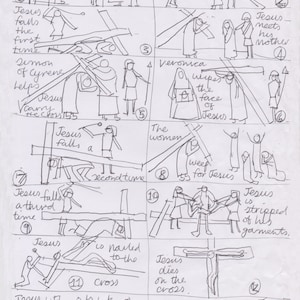 Jesus
falls
the
first
time
3
Jesus
meets
his
mother
4
Simon
of Cyrene
helps
Jesus
carry
the cross
5
Veronica
wipes
the face
of
Jesus
6
Jesus
falls a
second time
7
The
women
weep
for Jesus
8
Jesus
falls
a third
time
9
10
Jesus
is
stripped
of his
garments.
Jesus
is nailed
to the
cross
11
Jesus
dies
on the
cross.
12